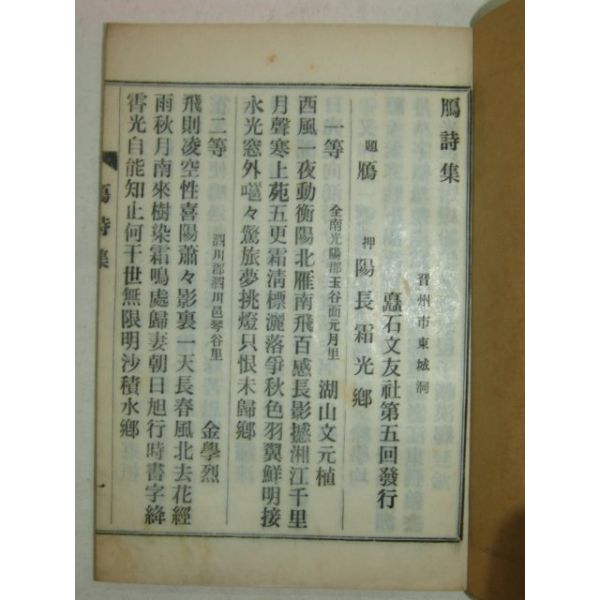 鴈詩集
晋州市東城洞
矗石文友社第五回發行
題 鴈 押 陽長霜光鄕
一等 全南光陽郡玉谷面元月里 湖山文元植
西風一夜動衡陽北雁南飛百感長影撼湘江千里
月聲寒上苑五更霜清標灑落爭秋色羽翼鮮明接
水光窓外嗈々驚旅夢挑燈只恨未歸鄕
二等 泗川郡泗川邑琴谷里 金學烈
飛則凌空性喜陽蕭々影裏一天長春風北去花經
雨秋月南來樹染霜鳴處歸妻朝日旭行時書字絳
霄光自能知止何干世無限明沙積水鄕
鴈詩集
一